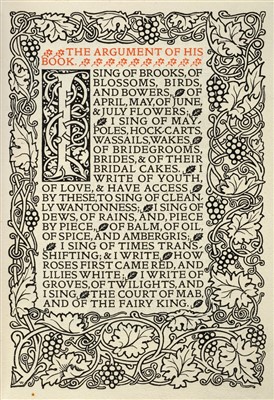 THE ARGUMENT OF HIS
BOOK.
I SING OF BROOKS, OF
BLOSSOMS, BIRDS,
AND BOWERS, OF
APRIL, MAY, OF JUNE,
& JULY FLOWERS;
I SING OF MAY-
POLES, HOCK-CARTS,
WASSAILS, WAKES,
OF BRIDEGROOMS,
BRIDES, & OF THEIR
BRIDAL CAKES. I
WRITE OF YOUTH,
OF LOVE, & HAVE ACCESS
BY THESE, TO SING OF CLEAN-
LY WANTONNESS; I SING OF
DEWS, OF RAINS, AND, PIECE
BY PIECE, OF BALM, OF OIL
OF SPICE, AND AMBERGRIS;
I SING OF TIMES TRANS-
SHIFTING; & I WRITE HOW
ROSES FIRST CAME RED, AND
LILIES WHITE; I WRITE OF
GROVES, OF TWILIGHTS, AND
I SING THE COURT OF MAB,
AND OF THE FAIRY KING.